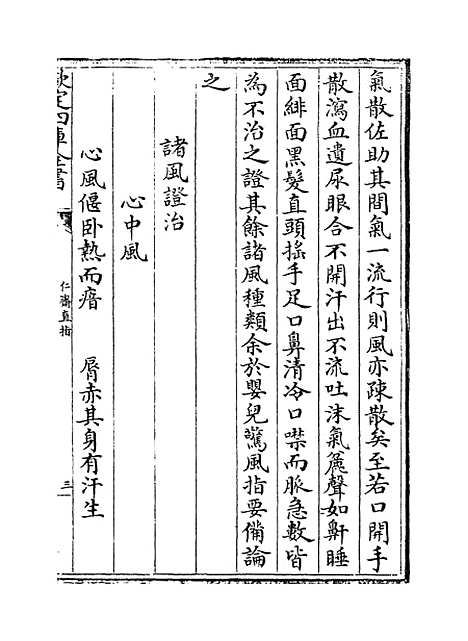 氣散佐助其間氣一流行則風亦疎散矣至若口開手
散瀉血遺尿眼合不開汗出不流吐沫氣麄聲如鼾睡
面緋面黑髮直頭搖手足口鼻清冷口噤而脈急數皆
為不治之證其餘諸風種類余於嬰兒驚風指要備論
之
諸風證治
心中風
心風偃卧熱而瘖　　唇赤其身有汗生
欽定四庫全書
仁齋直指
三